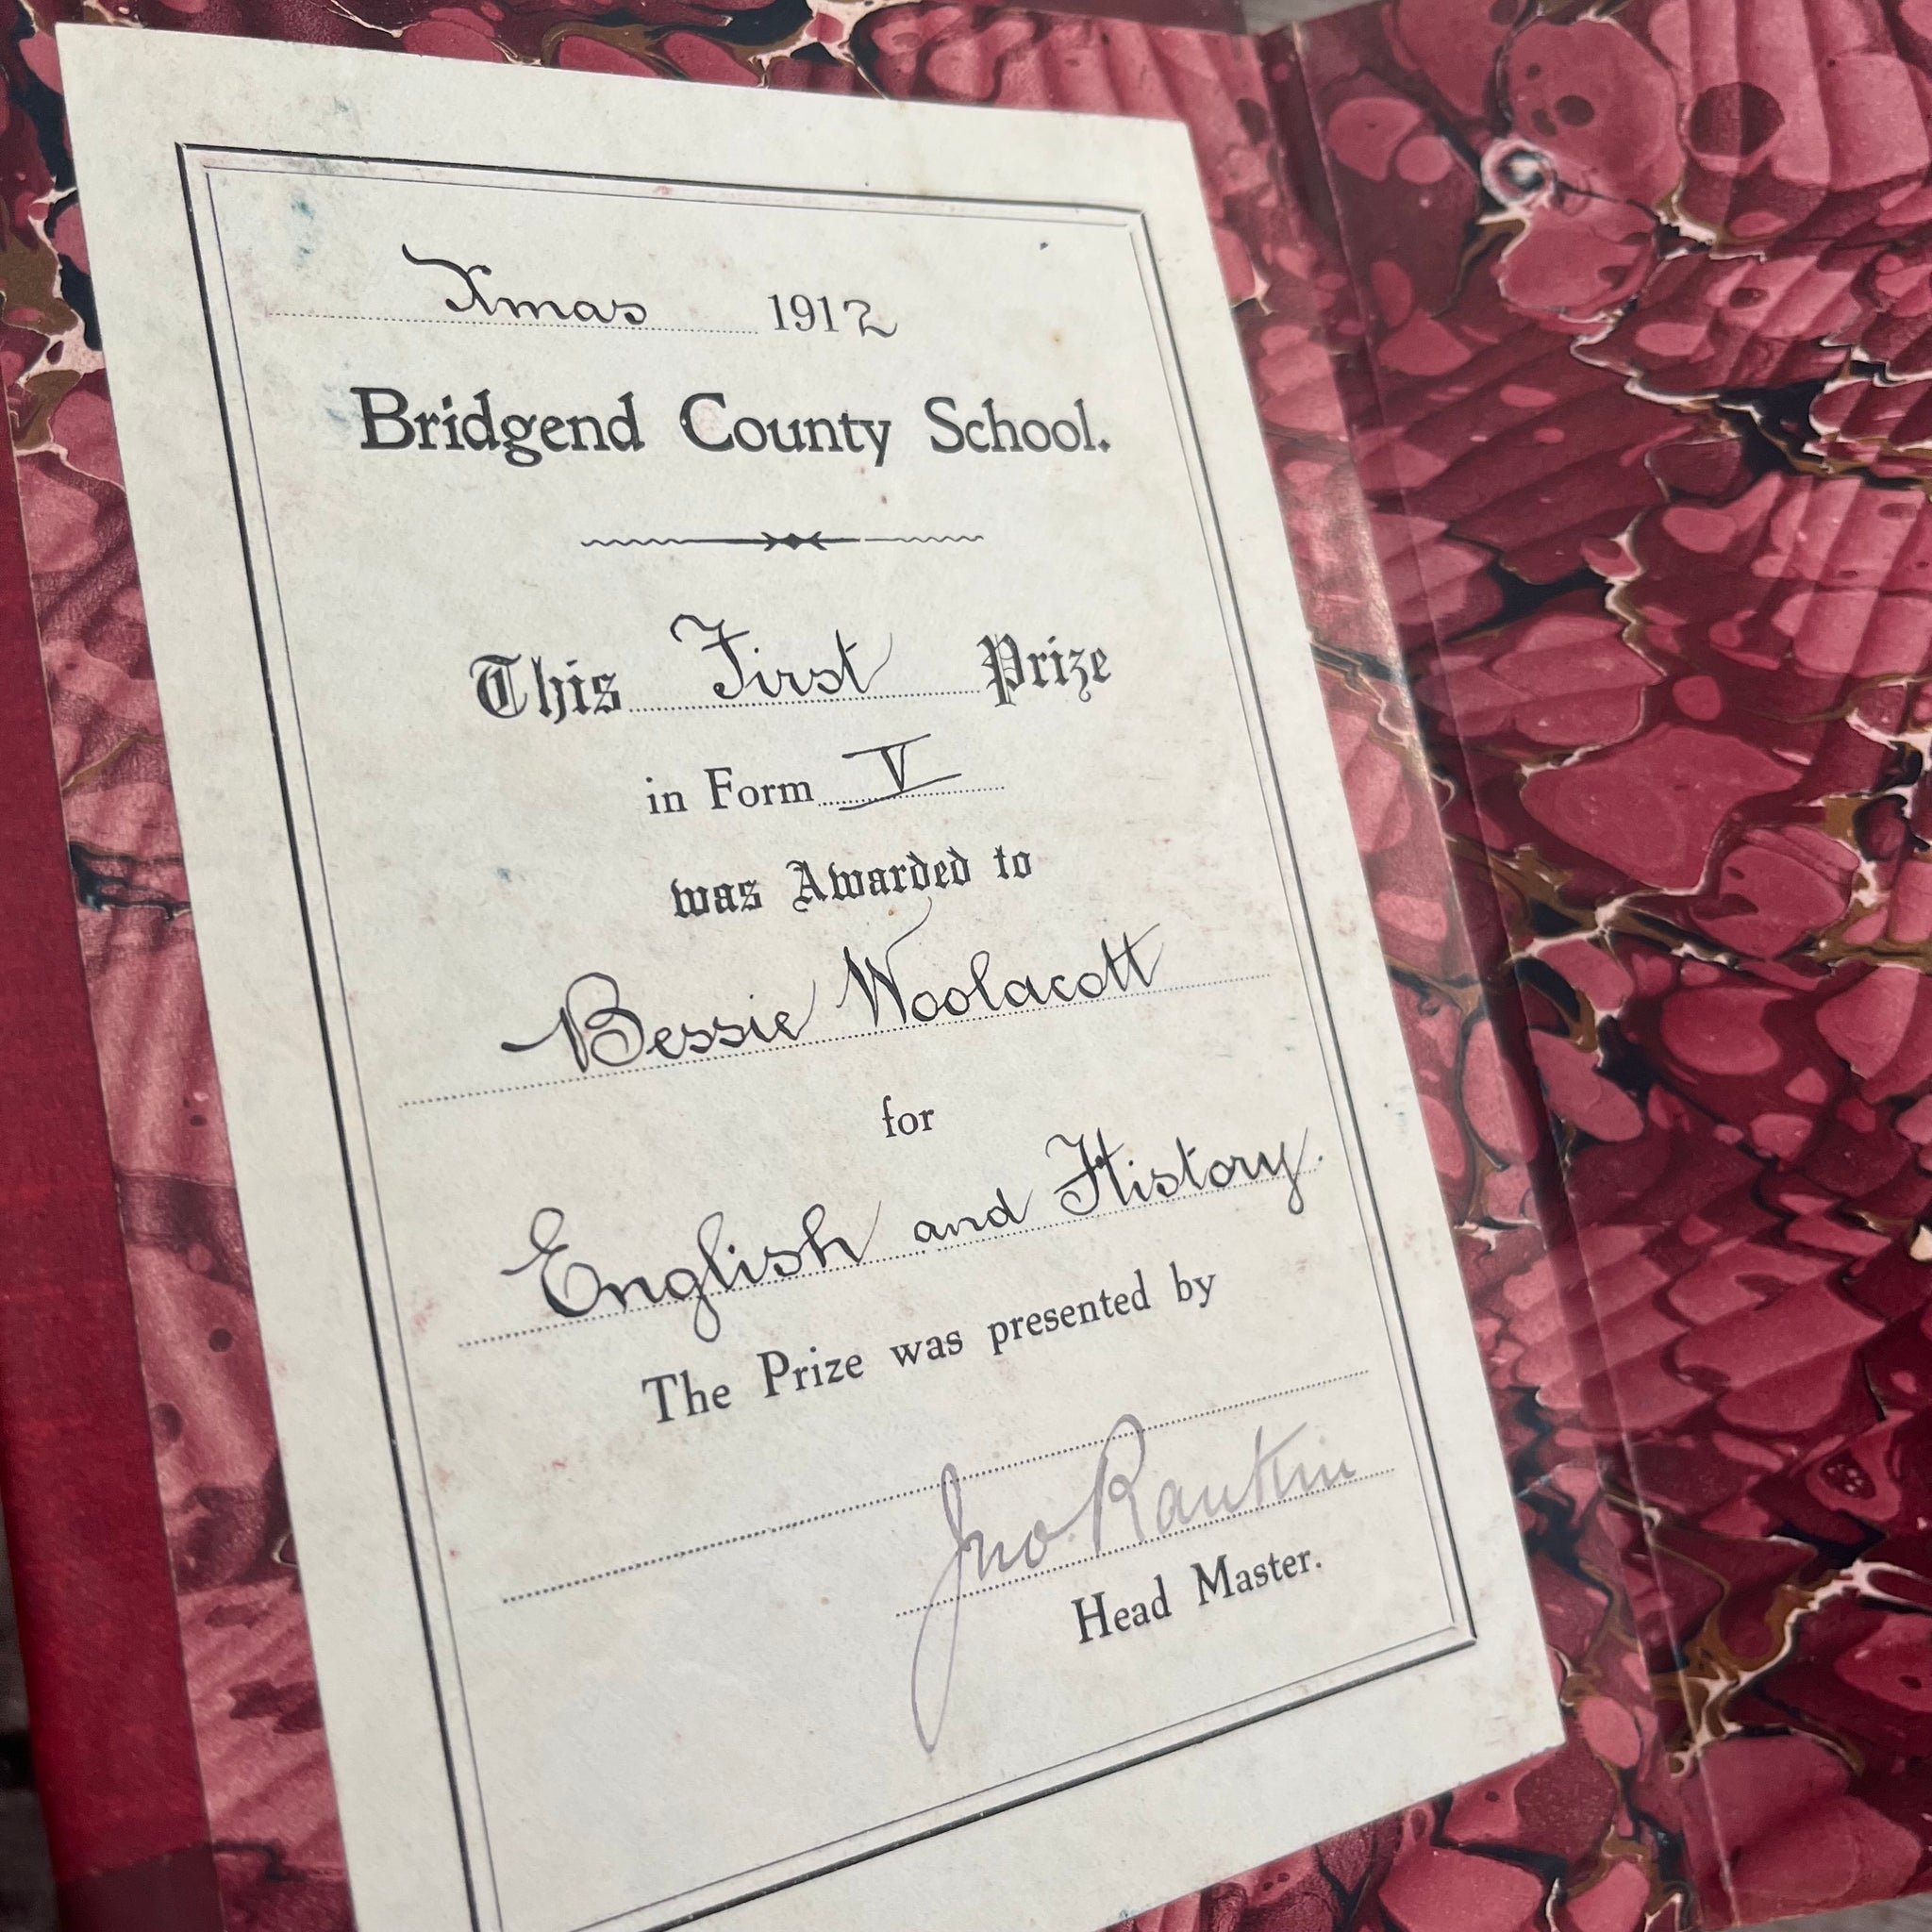 Xmas 1912
Bridgend County School.
This First Prize
in Form V
was Awarded to
Bessie Woolacott
for
English and History.
The Prize was presented by
Jno Rankin
Head Master.